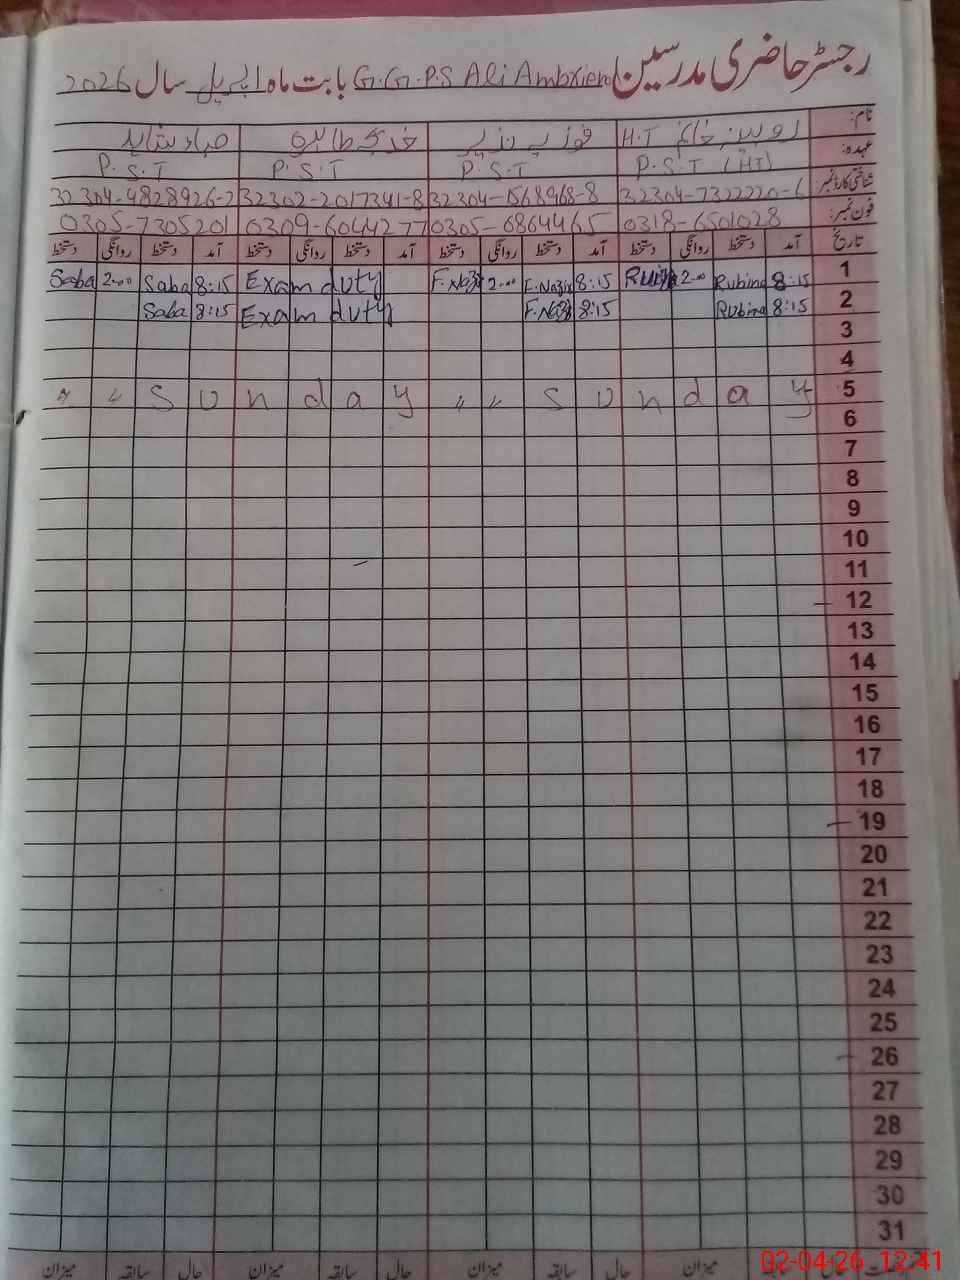 رجسٹر حاضری مدرسین G.G.P.S Ali Ambxiend بابت ماہ اپریل سال 2026
نام: روبینہ خانم H.T فوزیہ نذیر خدیجہ طاہرہ صباء شاہد
عہدہ: P.S.T (HT) P.S.T P.S.T P.S.T
شناختی کارڈ نمبر: 32304-7322220-6 32304-1568968-8 32302-2017341-8 32304-4828926-2
فون نمبر: 0318-6501028 0305-6864465 0309-6044277 0305-7305201
تاریخ آمد دستخط روانگی دستخط آمد دستخط روانگی دستخط آمد دستخط روانگی دستخط آمد دستخط روانگی دستخط
1 8:15 Rubina 2-00 8:15 F.Nazir 2-00 F.Nazir Exam duty 8:15 Saba 2-00 Saba
2 8:15 Rubina 8:15 F.Nazir Exam duty 8:15 Saba
3
4
5 " " Sunday " " Sunday
6
7
8
9
10
11
12
13
14
15
16
17
18
19
20
21
22
23
24
25
26
27
28
29
30
31
حال سابقہ میزان حال سابقہ میزان حال سابقہ میزان
02-04-26 12:41